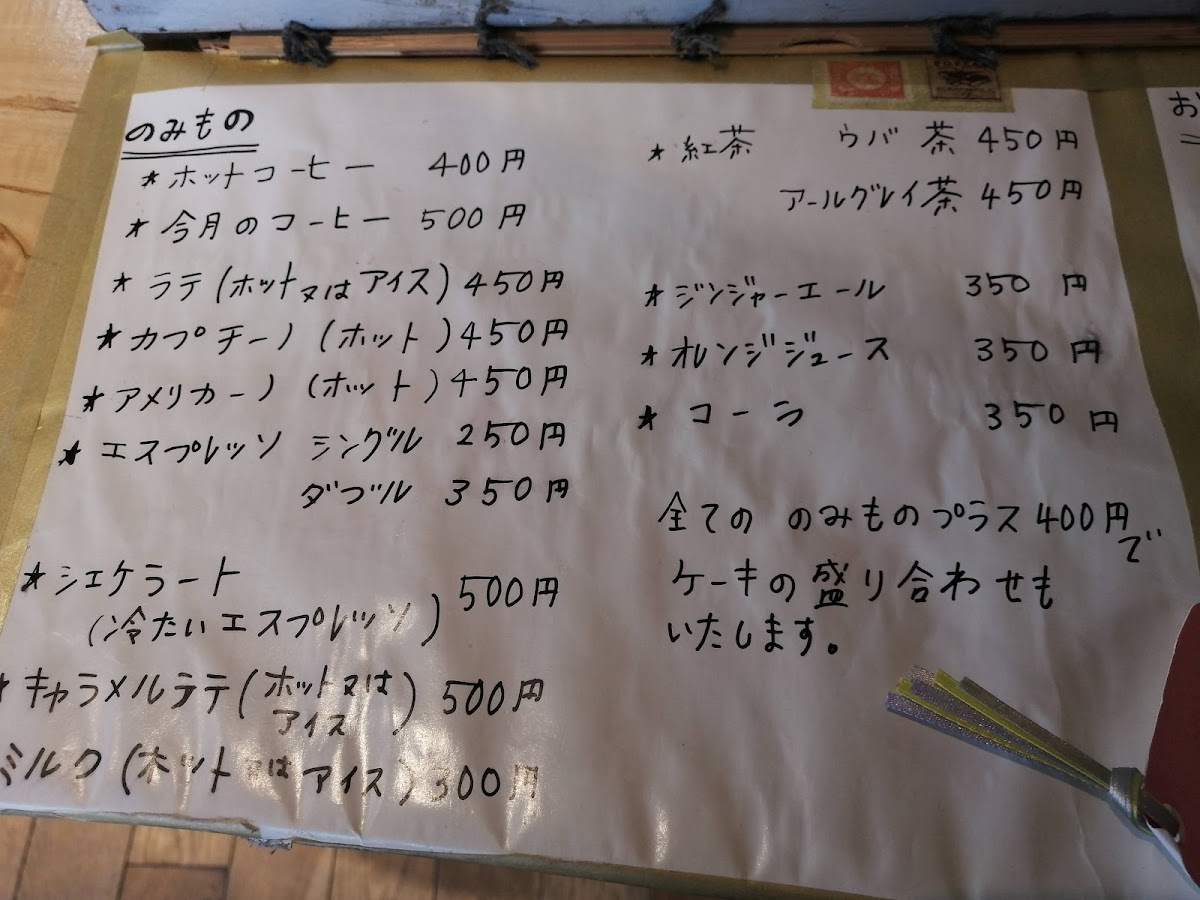 のみもの
★ホットコーヒー 400円
★今月のコーヒー 500円
★ラテ(ホット又はアイス) 450円
★カプチーノ(ホット) 450円
★アメリカーノ(ホット) 450円
★エスプレッソ シングル 250円
ダブル 350円
★シェケラート
(冷たいエスプレッソ) 500円
★キャラメルラテ(ホット又は
アイス) 500円
ミルク(ホット又はアイス) 300円
★紅茶 ウバ茶 450円
アールグレイ茶 450円
★ジンジャーエール 350円
★オレンジジュース 350円
★コーラ 350円
全ての のみものプラス400円で
ケーキの盛り合わせも
いたします。